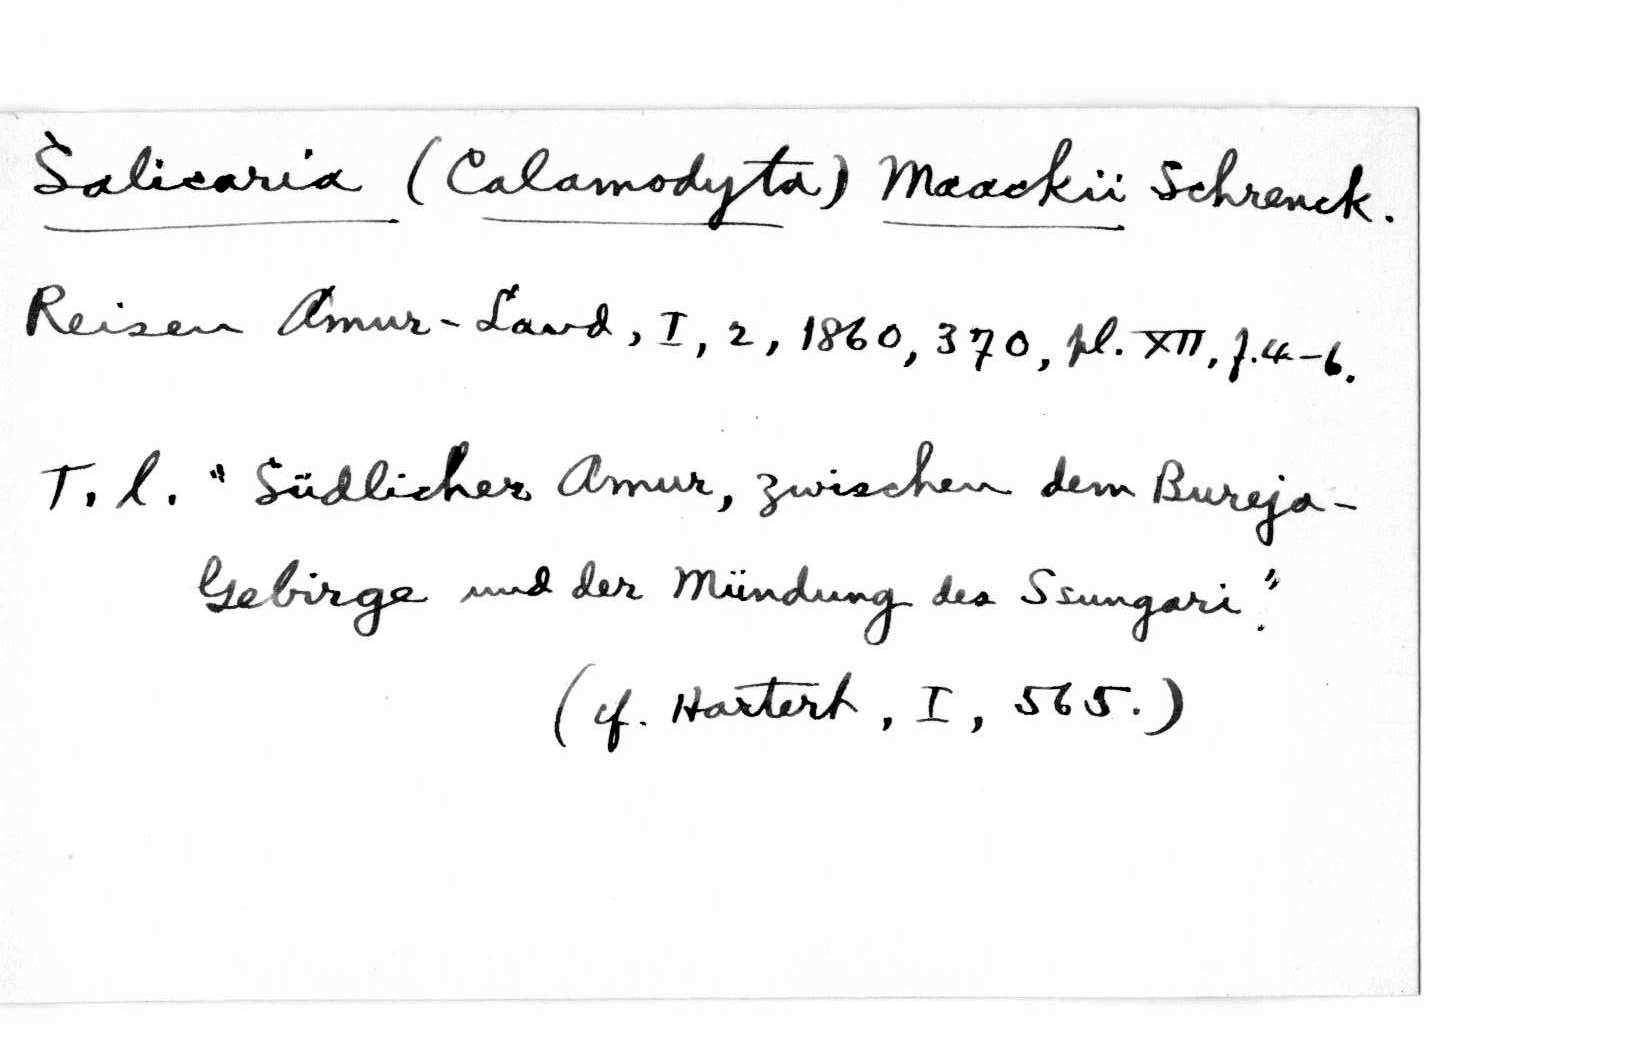 Salicaria (Calamodyta) Maackii Schrenck.
Reisen Amur-Land, I, 2, 1860, 370, pl. XII, f. 4-6.
T. l. "Südlicher Amur, zwischen dem Bureja-
Gebirge und der Mündung des Ssungari".
(cf. Hartert, I, 565.)